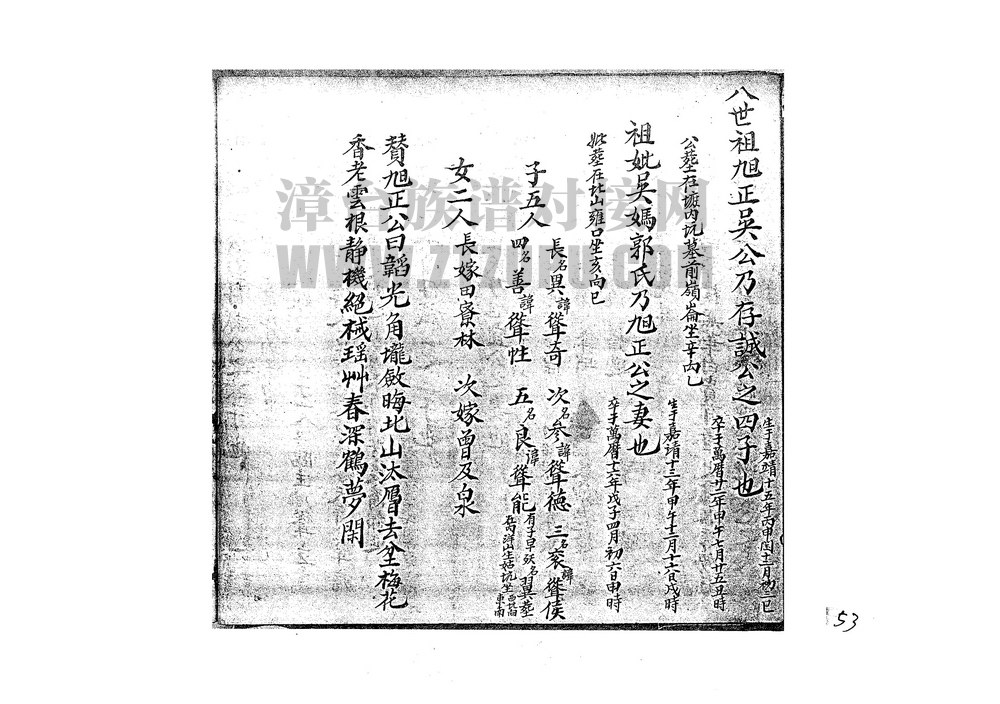 八世祖旭正吳公乃存誠公之四子也
生于嘉靖十五年丙申閏十二月初二巳
卒于萬曆廿二年甲午七月廿五丑時
公葬在壙內坑墓前嶺崙坐辛向乙
祖妣吳媽郭氏乃旭正公之妻也
生于嘉靖十三年甲午十二月十六日戌時
卒于萬曆十六年戊子四月初六日申時
妣葬在北山雍口坐亥向巳
子五人
長名異諱聳奇 次名參諱聳德 三名袞諱聳侯
四名善諱聳性 五名良諱聳能
有子早殀名翼葬
坑坐酉向東南
女二人 長嫁田寮林 次嫁曾及泉
贊旭正公曰韜光角壠斂晦北山汰層去坌梅花
香老雲根靜機絕械瑶艸春深鶴夢閑
漳台族谱对接网
WWW.ZTZUPU.COM
53